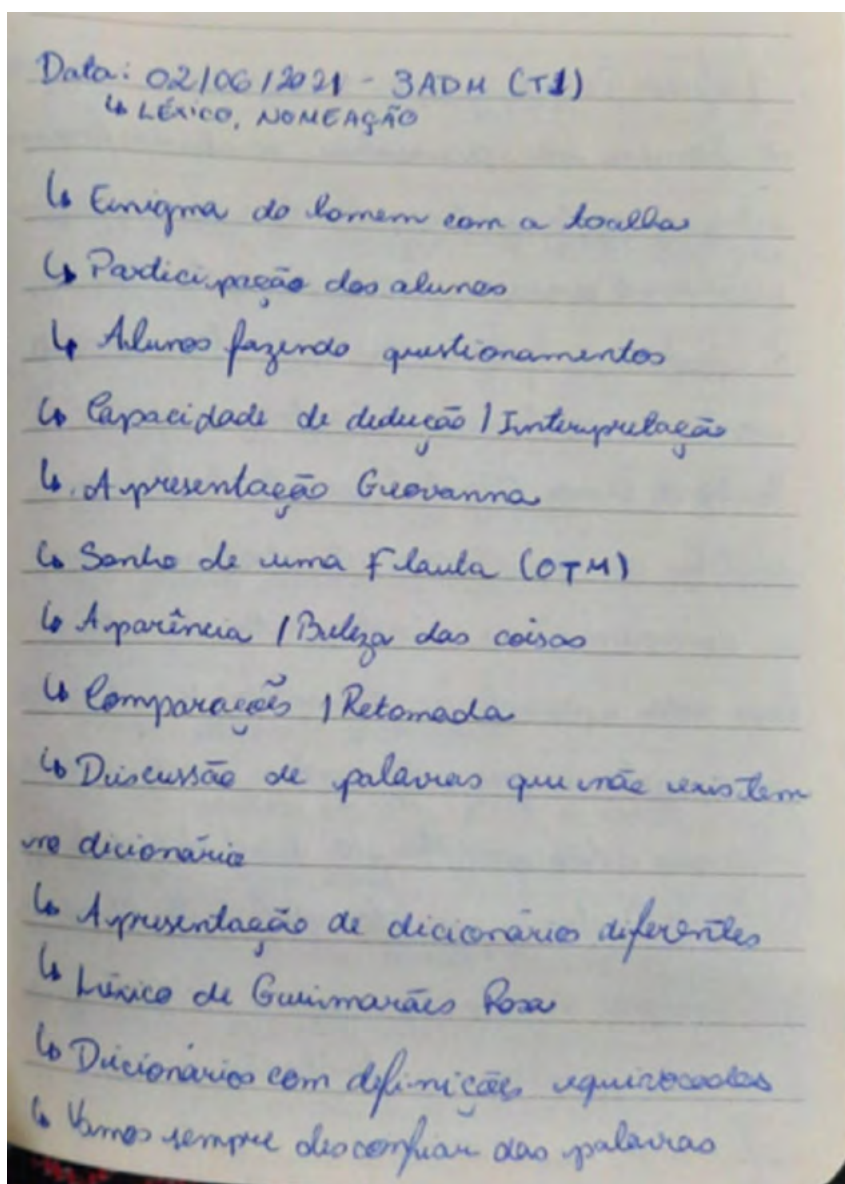 Data: 02/06/2021 - 3ADM (T1)
↳ LÉXICO, NOMEAÇÃO
↳ Enigma do homem com a toalha
↳ Participação dos alunos
↳ Alunos fazendo questionamentos
↳ Capacidade de dedução / Interpretação
↳ Apresentação Geovanna
↳ Sonho de uma Flauta (OTM)
↳ Aparência / Beleza das coisas
↳ Comparações / Retomada
↳ Discussão de palavras que não existem
no dicionário
↳ Apresentação de dicionários diferentes
↳ Léxico de Guimarães Rosa
↳ Dicionários com definições equivocadas
↳ Vamos sempre desconfiar das palavras